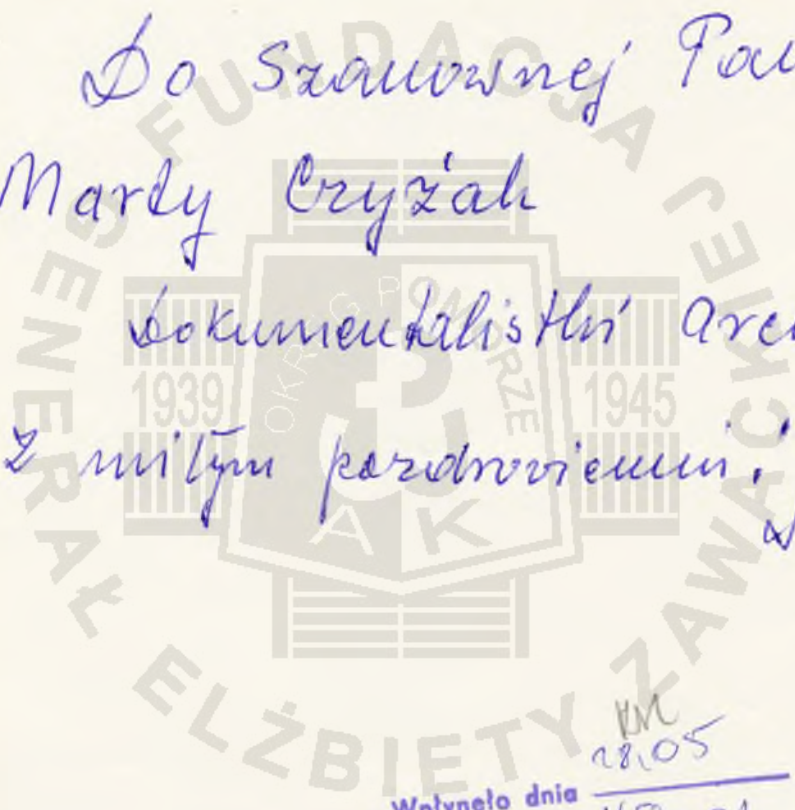 Do Szanownej Pan
Marty Czyżak
Dokumentalistki Arc
z miłym pozdrowieniem i
FUNDACJA GENERAŁ ELŻBIETY ZAWACKIEJ
OKRĘG POMORZE
1939 1945
AK
KM
28,05
Wpłynęło dnia